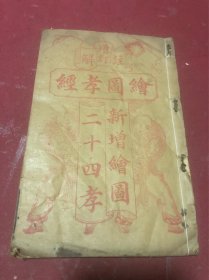 繪圖孝經
新增繪圖
二十四孝